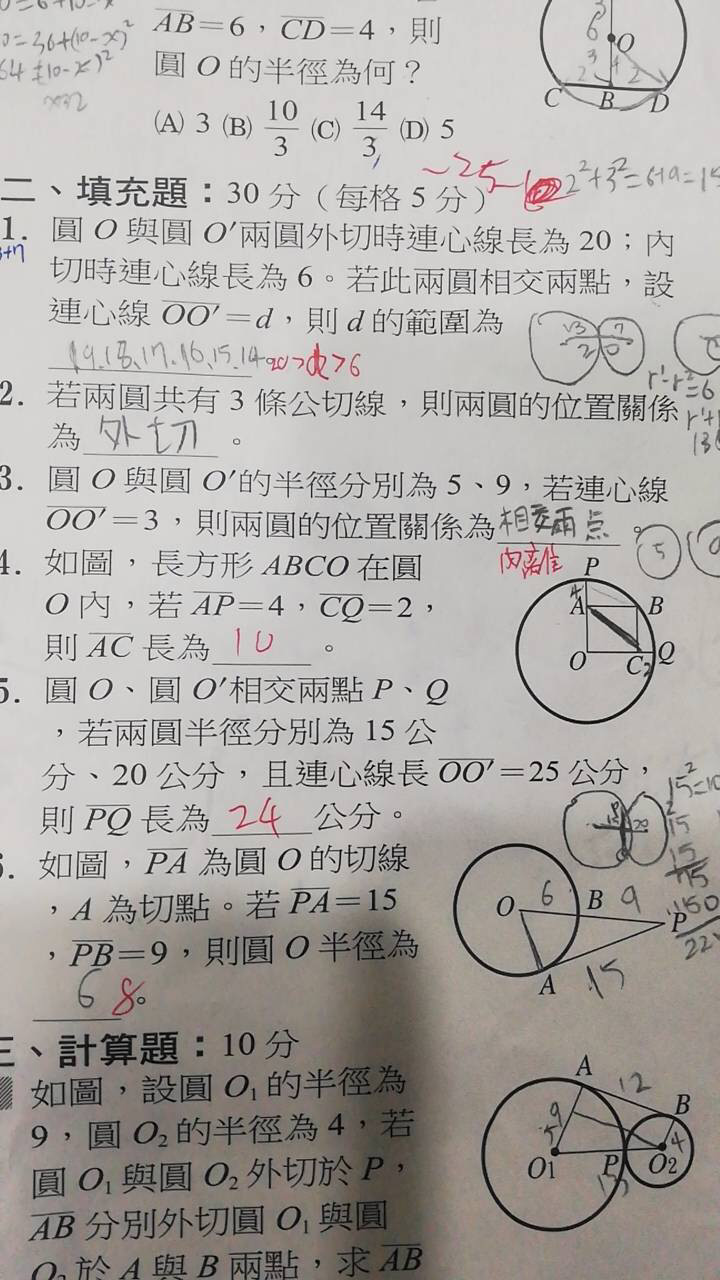 0=36+(10-x)²
AB=6，CD=4，則
圓 O 的半徑為何？
(A) 3 (B) 10/3 (C) 14/3 (D) 5
O
C B D
二、填充題：30 分（每格 5 分）
2²+3²=
1. 圓 O 與圓 O′兩圓外切時連心線長為 20；內
切時連心線長為 6。若此兩圓相交兩點，設
連心線 OO′=d，則 d 的範圍為
19.18.17.16.15.14 20>d>6
2. 若兩圓共有 3 條公切線，則兩圓的位置關係
為 外切 。
3. 圓 O 與圓 O′的半徑分別為 5、9，若連心線
OO′=3，則兩圓的位置關係為 相交兩点 。
內離
4. 如圖，長方形 ABCO 在圓
O 內，若 AP=4，CQ=2，
則 AC 長為 10 。
P
4
A B
O C 2 Q
5. 圓 O、圓 O′相交兩點 P、Q
，若兩圓半徑分別為 15 公
分、20 公分，且連心線長 OO′=25 公分，
則 PQ 長為 24 公分。
6. 如圖，PA 為圓 O 的切線
，A 為切點。若 PA=15
，PB=9，則圓 O 半徑為
6 8。
O 6 B 9 P
A 15
三、計算題：10 分
如圖，設圓 O₁ 的半徑為
9，圓 O₂ 的半徑為 4，若
圓 O₁ 與圓 O₂ 外切於 P，
AB 分別外切圓 O₁ 與圓
O₂ 於 A 與 B 兩點，求 AB
A 12 B
9 4
5
O1 P O2
13